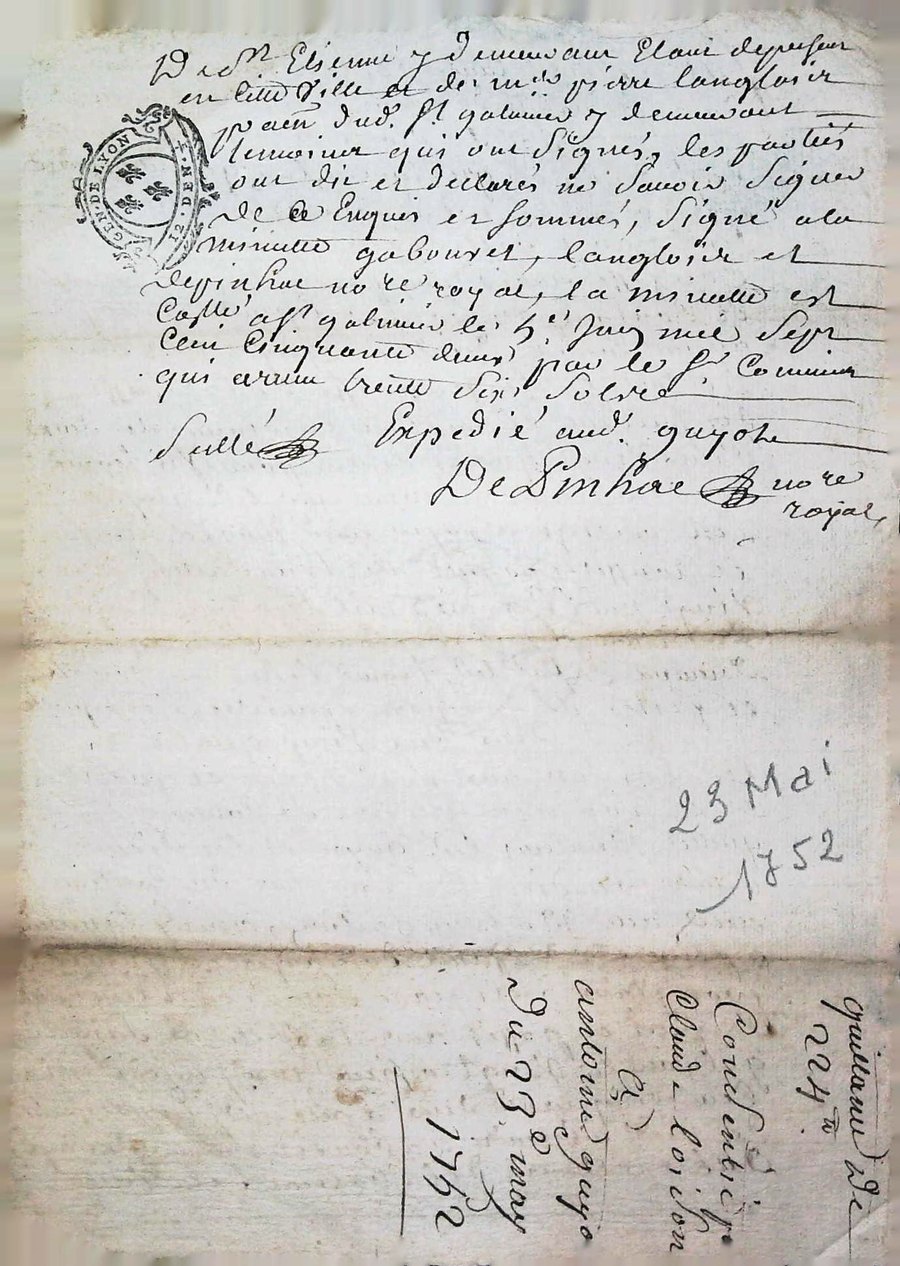 De St Etienne y demeurant Etant de present
en cette Ville et de mre pierre langloix
dud. St galmier y demeurant
temoins qui ont Signés, les parties
ont dit et declarés ne Savoir Signer
de ce Enquis et Sommés, Signé a la
minutte gabouret, langloix et
depinhac nore royal, la minutte est
a St galmier le Juin mil Sept
Cent Cinquante deux par le Sr Commis
qui a reçu trente Six Sols
Sellé Expedié aud. guyot
De Pinhac nore
royal
GEN. DE LYON
12 DEN.
23 Mai
1752
quittance De
224tt
Claude loison
a
antoine guyo
Du 23e may
1752